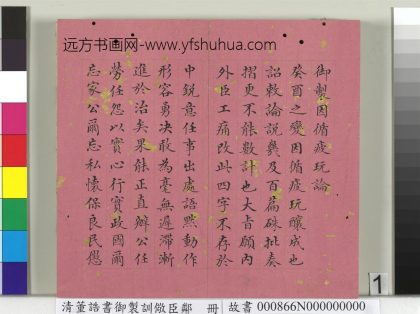 远方书画网-www.yfshuhua.com
御製因循疲玩論
癸酉之變因循疲玩釀成也
詔敕論說幾及百篇硃批奏
摺更不能數計也大旨願內
外臣工痛改此四字不存於
中銳意任事出處語默動作
形容勇決敢為毫無遲滯漸
進於治矣果能正直辦公任
勞任怨以實心行實政國爾
忘家公爾忘私懷保良民懲
1
清董誥書御製訓儆臣鄰 冊 故書 000866N000000000